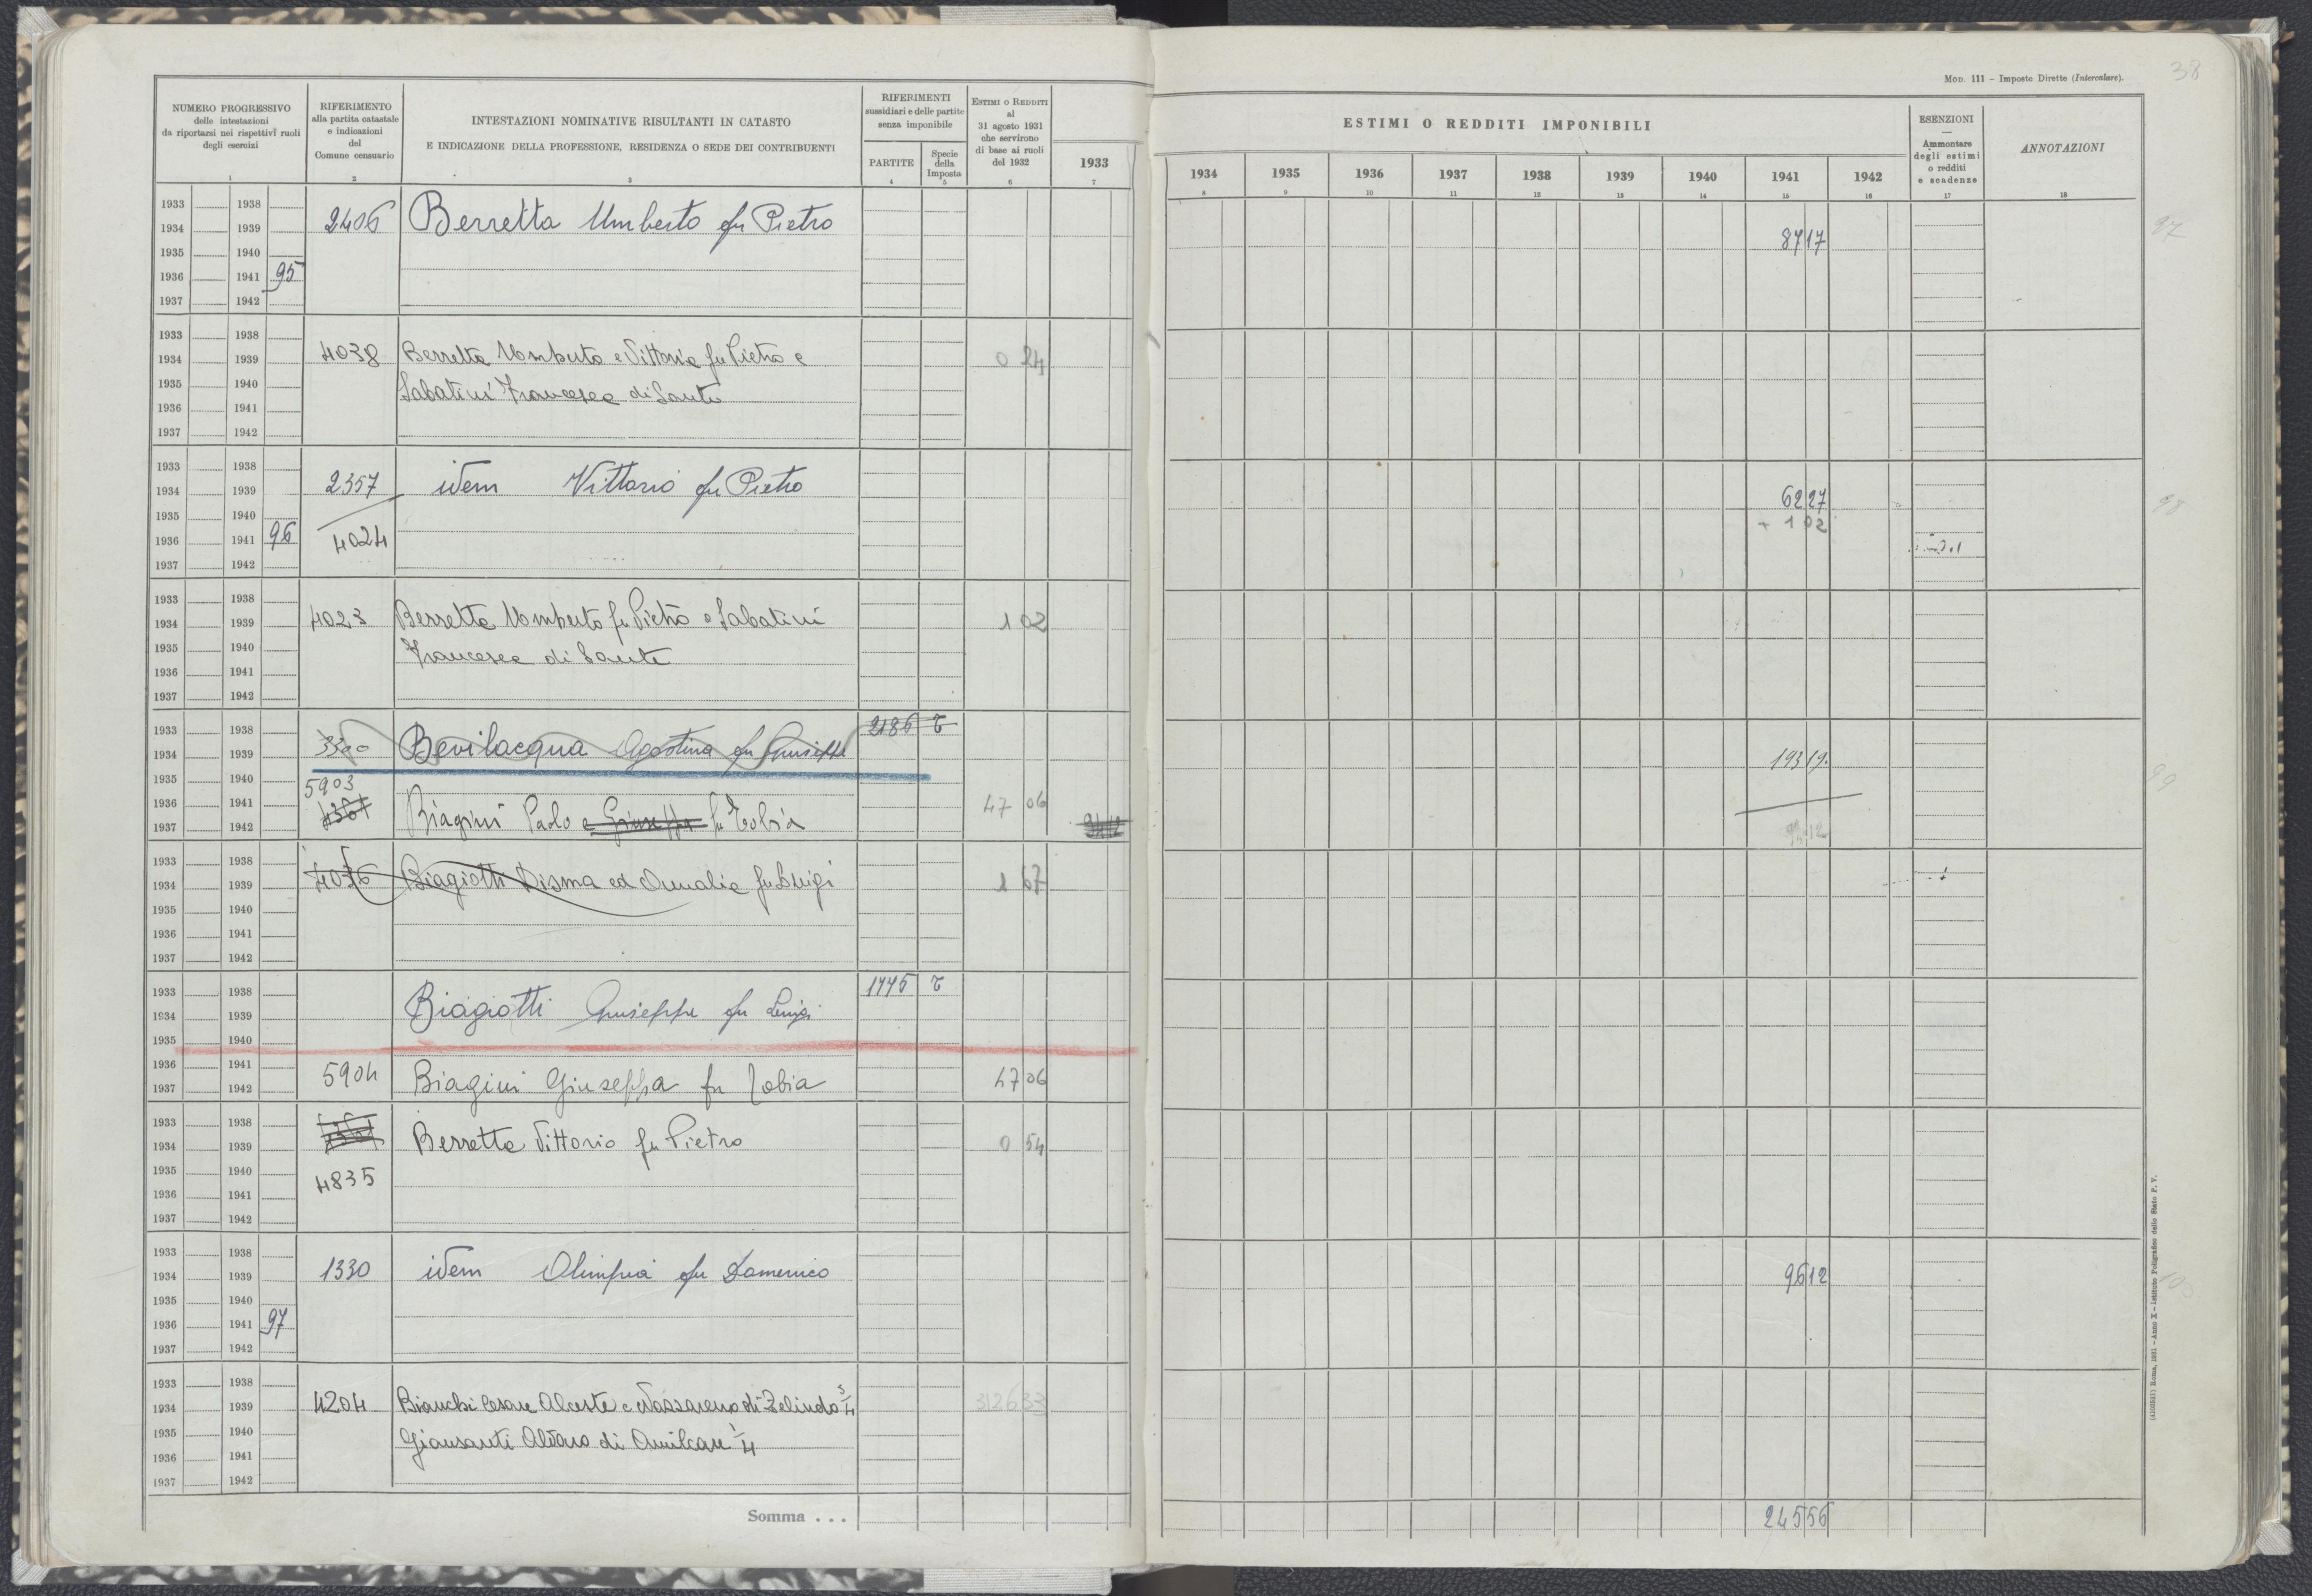 MOD. 111 – Imposte Dirette (Intercalare).
38
NUMERO PROGRESSIVO
delle intestazioni
da riportarsi nei rispettivi ruoli
degli esercizi
RIFERIMENTO
alla partita catastale
e indicazioni
del
Comune censuario
INTESTAZIONI NOMINATIVE RISULTANTI IN CATASTO
E INDICAZIONE DELLA PROFESSIONE, RESIDENZA O SEDE DEI CONTRIBUENTI
RIFERIMENTI
sussidiari e delle partite
senza imponibile
PARTITE
Specie
della
Imposta
ESTIMI O REDDITI
al
31 agosto 1931
che servirono
di base ai ruoli
del 1932
ESTIMI O REDDITI IMPONIBILI
1933 1934 1935 1936 1937 1938 1939 1940 1941 1942
ESENZIONI
—
Ammontare
degli estimi
o redditi
e scadenze
ANNOTAZIONI
1 2 3 4 5 6 7 8 9 10 11 12 13 14 15 16 17 18
1933 1938
1934 1939 2406 Berretta Umberto fu Pietro 87 17 97
1935 1940
1936 1941 95
1937 1942
1933 1938
1934 1939 4038 Berretta Umberto e Vittorio fu Pietro e 0 24
1935 1940 Sabatini Francesca di Sante
1936 1941
1937 1942
1933 1938
1934 1939 2357 idem Vittorio fu Pietro 62 27 98
1935 1940 + 1 02
1936 1941 96 4024
1937 1942
1933 1938
1934 1939 4023 Berretta Umberto fu Pietro e Sabatini 1 02
1935 1940 Francesca di Sante
1936 1941
1937 1942
1933 1938 2186 T
1934 1939 3300 Bevilacqua Agostina fu Giuseppe 193 19 99
1935 1940 5903
1936 1941 Biagini Paolo e Giuseppa fu Tobia 47 06
1937 1942
1933 1938
1934 1939 Biagiotti Disma ed Amalia fu Luigi 1 67
1935 1940
1936 1941
1937 1942
1933 1938 1775 T
1934 1939 Biagiotti Giuseppe fu Luigi
1935 1940
1936 1941
1937 1942 5904 Biagini Giuseppa fu Tobia 47 06
1933 1938
1934 1939 Berretta Vittorio fu Pietro 0 54
1935 1940 4835
1936 1941
1937 1942
1933 1938
1934 1939 1330 idem Olimpia fu Domenico 96 12
1935 1940
1936 1941 97
1937 1942
1933 1938
1934 1939 4204 Bianchi Cesare Alceste e Nazzareno di Zelindo 3/4 312 633
1935 1940 Giansanti Alvaro di Amilcare 1/4
1936 1941
1937 1942
Somma . . . 245 56
(4103341) Roma, 1931 – Anno X – Istituto Poligrafico dello Stato P. V.